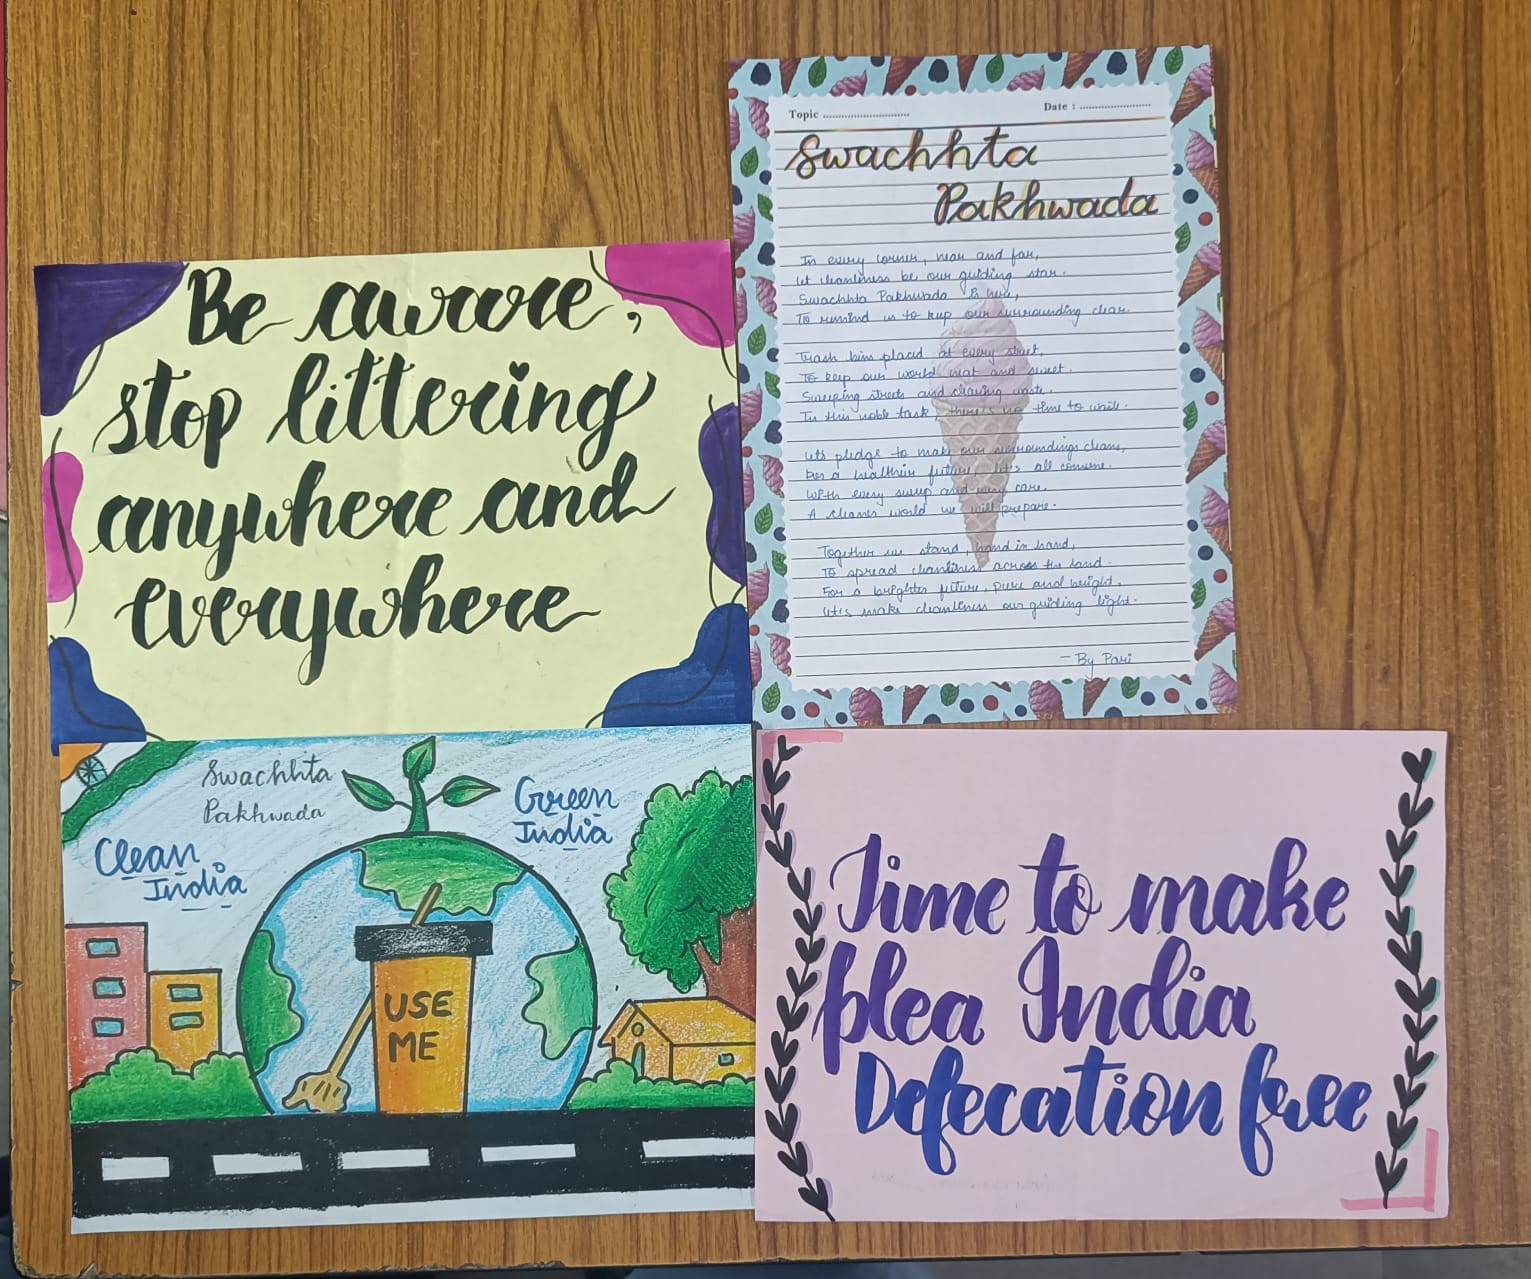 Be aware,
stop littering
anywhere and
everywhere
Topic ............................
Date : ........................
Swachhta
Pakhwada
In every corner, near and far,
let cleanliness be our guiding star.
Swachhta Pakhwada is here,
To remind us to keep our surrounding clear.
Trash bins placed at every street,
To keep our world neat and sweet.
Sweeping streets and clearing waste,
In this noble task, there's no time to waste.
Let's pledge to make our surroundings clean,
For a healthier future, let's all convene.
With every sweep and every care.
A cleaner world we will prepare.
Together we stand, hand in hand,
To spread cleanliness across the land.
For a brighter future, pure and bright,
let's make cleanliness our guiding light.
- By Pari
Swachhta
Pakhwada
Green
India
Clean
India
USE
ME
Time to make
plea India
Defecation free